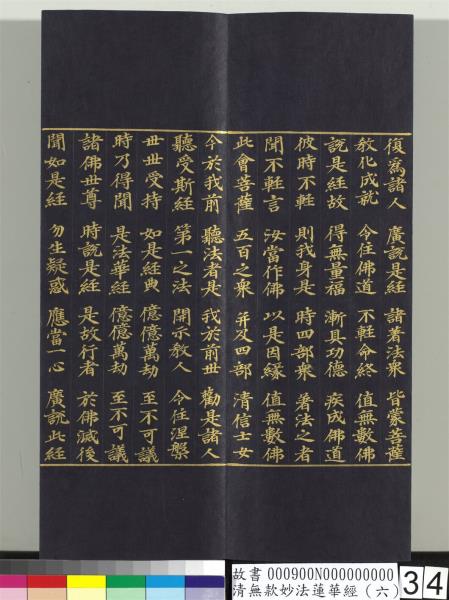 復為諸人 廣說是經 諸著法眾 皆蒙菩薩
教化成就 令住佛道 不軽命終 值無數佛
說是經故 得無量福 漸具功德 疾成佛道
彼時不軽 則我身是 時四部眾 著法之者
聞不軽言 汝當作佛 以是因緣 值無數佛
此會菩薩 五百之眾 并及四部 清信士女
今於我前 聽法者是 我於前世 勸是諸人
聽受斯經 第一之法 開示教人 令住涅槃
世世受持 如是經典 億億萬劫 至不可議
時乃得聞 是法華經 億億萬劫 至不可議
諸佛世尊 時說是經 是故行者 於佛滅後
聞如是經 勿生疑惑 應當一心 廣說此經
故書 000900N000000000
清無款妙法蓮華經（六）
34